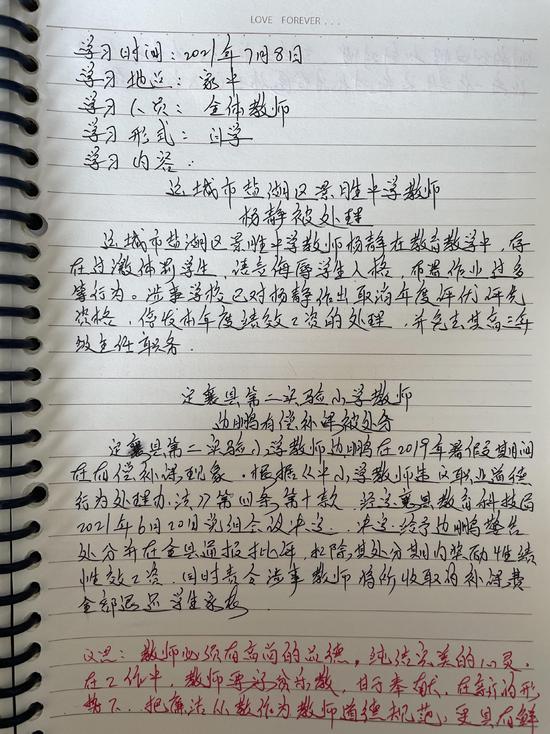 LOVE FOREVER...
学习时间:2021年7月8日
学习地点:家中
学习人员:全体教师
学习形式:自学
学习内容:
运城市盐湖区景胜中学教师
杨静被处理
运城市盐湖区景胜中学教师杨静在教育教学中,存
在过激体罚学生,语言侮辱学生人格,布置作业过多
等行为。涉事学校已对杨静作出取消年度评优评先
资格,停发本年度绩效工资的处理,并免去其高三年
级主任职务.
定襄县第二实验小学教师
边鹏有偿补课被处分
定襄县第二实验小学教师边鹏在2019年暑假及其期间
在有偿补课现象.根据《中小学教师违反职业道德
行为处理办法》第四条第十款.经定襄县教育科技局
2021年6月20日党组会议决定.决定给予边鹏警告
处分并在全县通报批评,扣除其处分期内奖励性绩
性效工资.同时责令涉事教师将所收取的补课费
全部退还学生家长.
反思:教师必须有高尚的品德,纯洁完美的心灵.
在工作中,教师要好为乐教,甘于奉献,在新的形
势下.把廉洁从教作为教师道德规范,更具有鲜